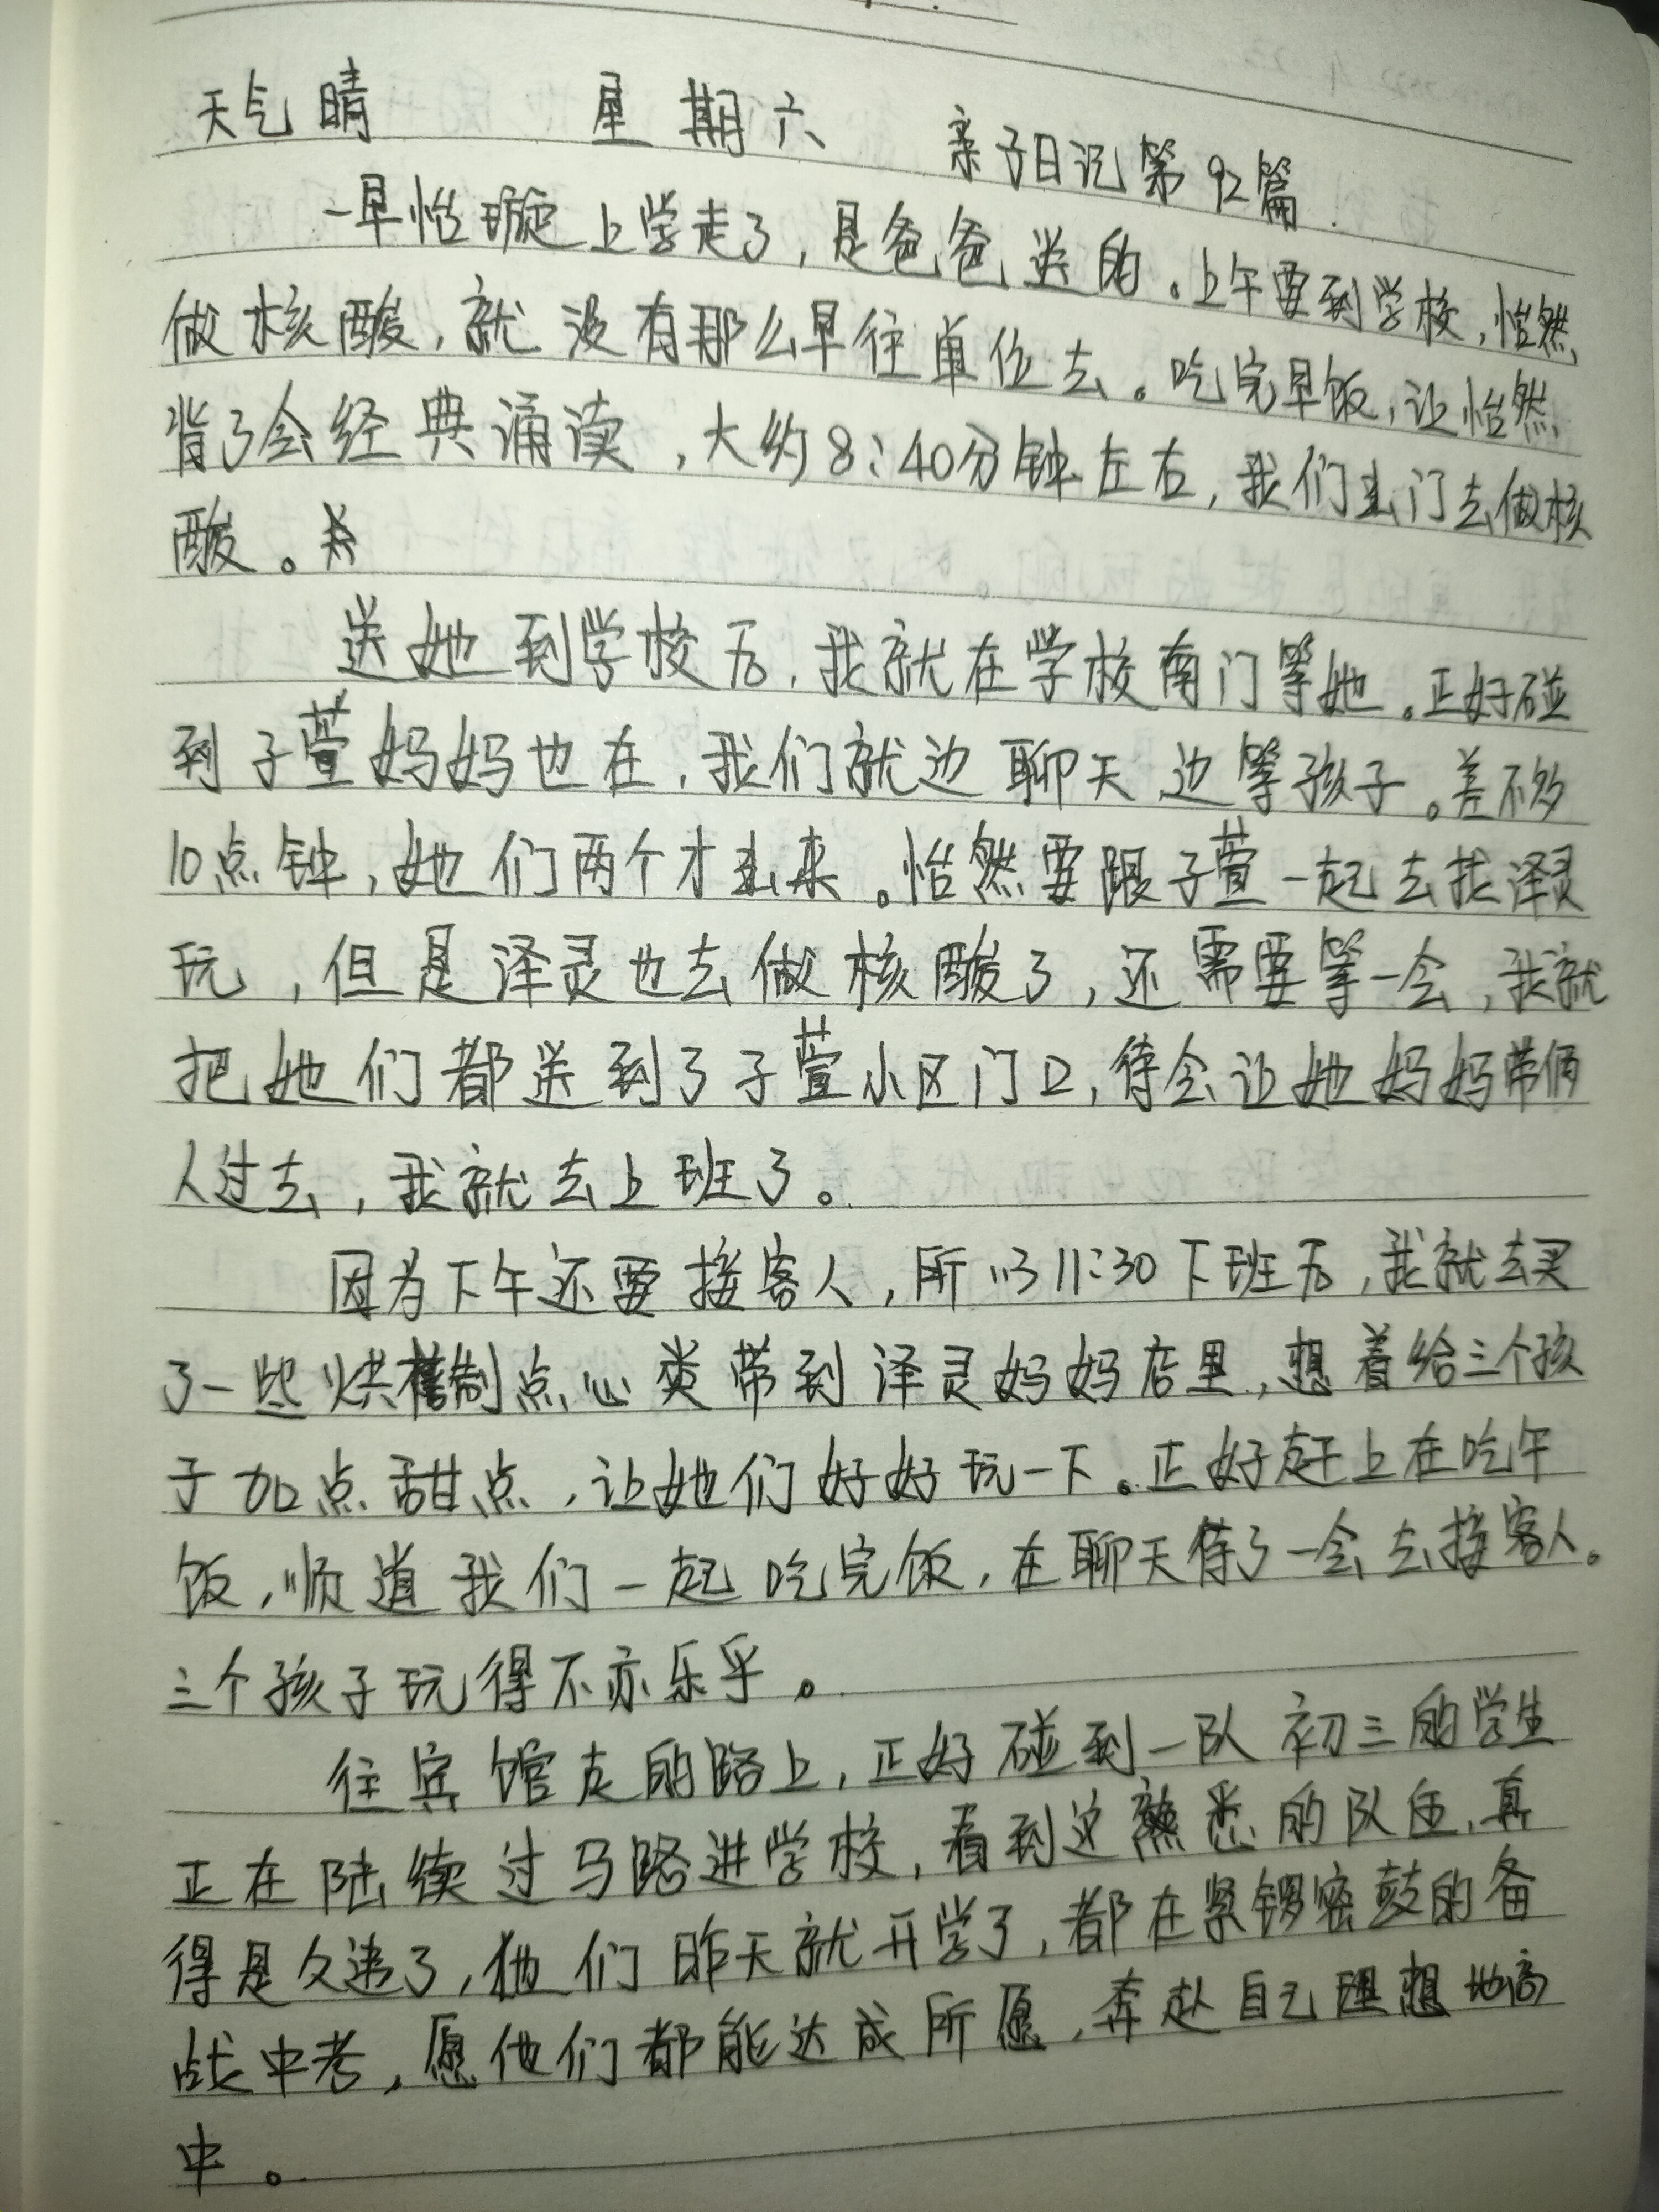 天气晴 星期六 亲子日记第92篇
一早怡璇上学走了,是爸爸送的。上午要到学校,怡然
做核酸,就没有那么早往单位去。吃完早饭,让怡然
背了会经典诵读,大约8:40分钟左右,我们出门去做核
酸。
送她到学校后,我就在学校南门等她。正好碰
到子萱妈妈也在,我们就边聊天边等孩子。差不多
10点钟,她们两个才出来。怡然要跟子萱一起去找泽灵
玩,但是泽灵也去做核酸了,还需要等一会,我就
把她们都送到了子萱小区门口,待会让她妈妈带俩
人过去,我就去上班了。
因为下午还要接客人,所以11:30下班后,我就去买
了一些烘制点心类带到泽灵妈妈店里,想着给三个孩
子加点甜点,让她们好好玩一下。正好赶上在吃午
饭,顺道我们一起吃完饭,在聊天待了一会去接客人。
三个孩子玩得不亦乐乎。
往宾馆走的路上,正好碰到一队初三的学生
正在陆续过马路进学校,看到这熟悉的队伍,真
得是久违了,他们昨天就开学了,都在紧锣密鼓的备
战中考,愿他们都能达成所愿,奔赴自己理想地高
中。